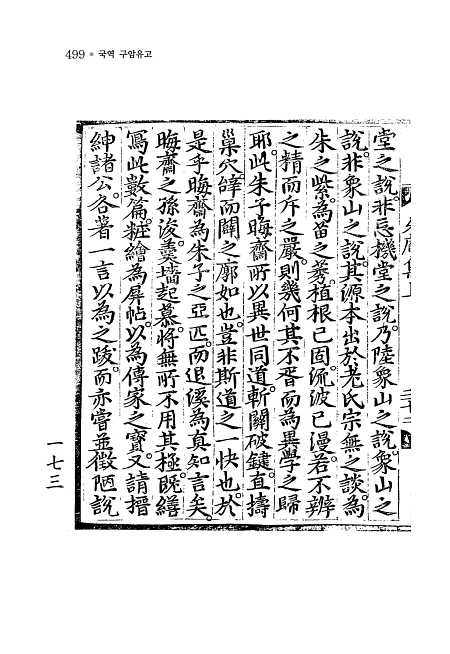 499 ● 국역 구암유고
堂之說。非忘機堂之說。乃陸象山之說。象山之
說。非象山之說。其源本出於老氏宗無之談。為
朱之紫。為苗之莠。植根已固。流波已漫。若不辨
之精而斥之嚴。則幾何其不胥而為異學之歸
耶。此朱子晦齋所以異世同道。斬關破鍵。直擣
巢穴。辭而闢之廓如也。豈非斯道之一快也。於
是乎晦齋為朱子之亞匹。而退溪為真知言矣。
晦齋之孫浚。羹墻起慕。將無所不用其極。旣繕
寫此數篇。粧繪為屛帖。以為傳家之寶。又請搢
紳諸公。各著一言以為之跋。而亦嘗並徵陋說
一七三